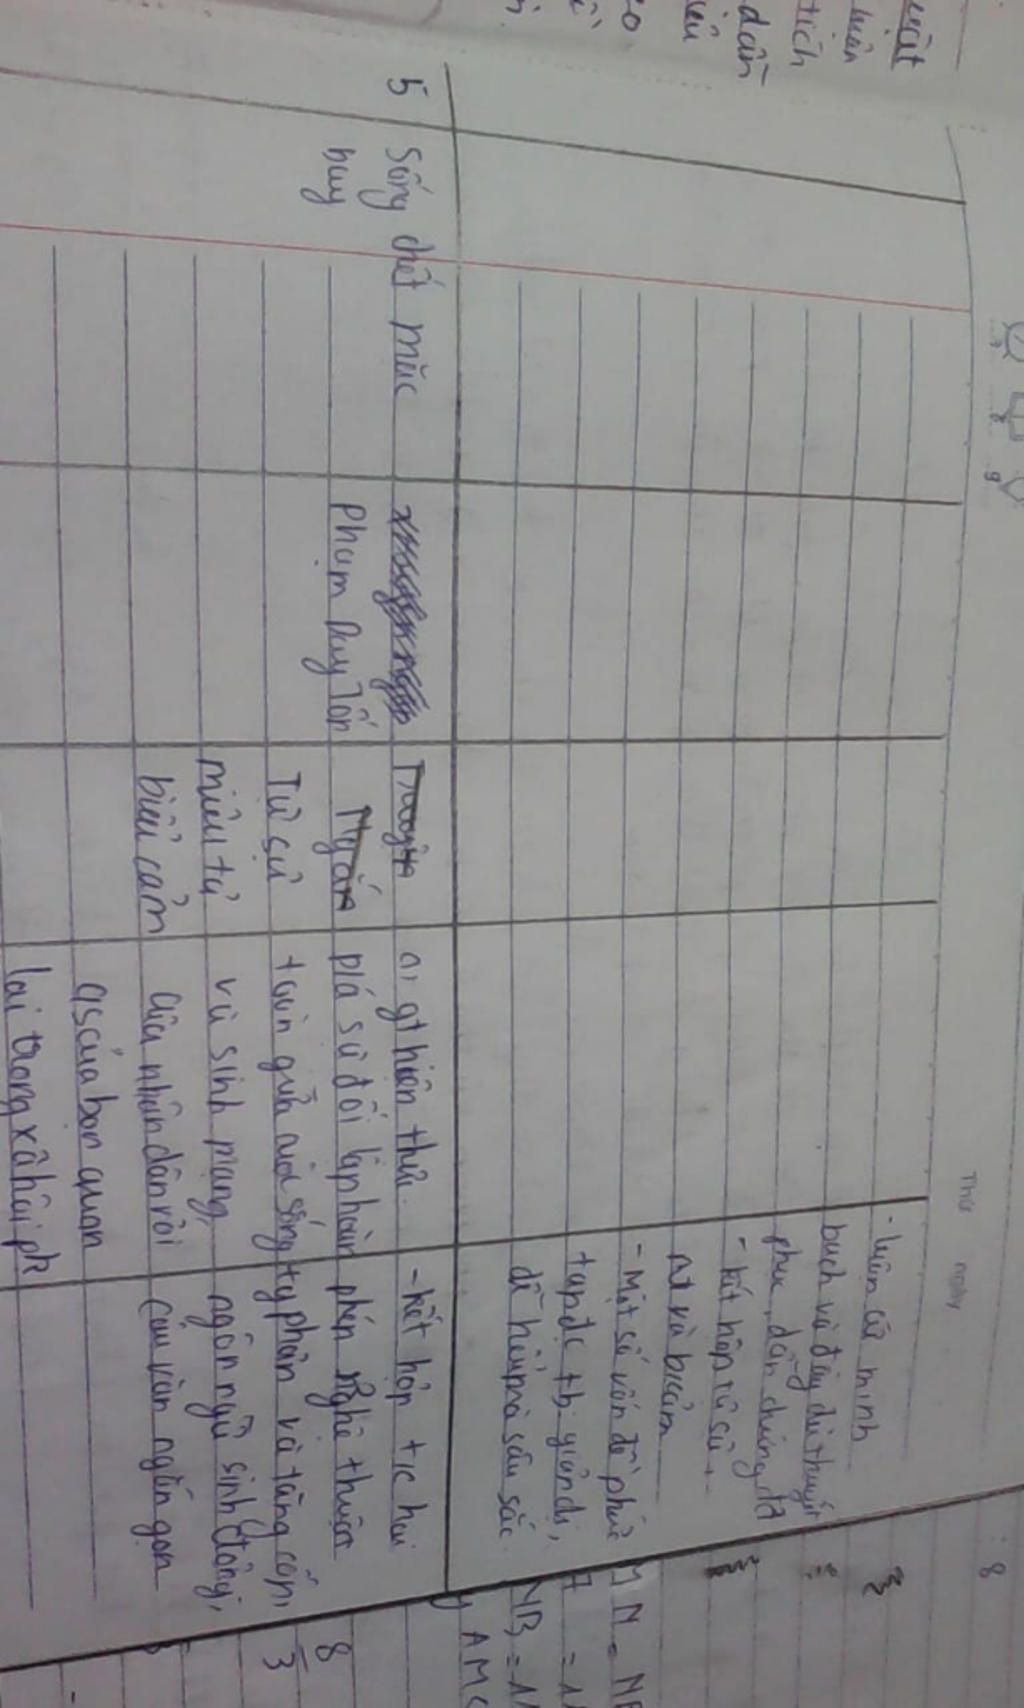 Thứ
ngày
8
- luận cứ minh
bạch và đầy đủ thuyết
phục, dẫn chứng
- kết hợp tự sự +
nt và b.cảm
- Một số vấn đề phức
tạp đc
giản dị,
dễ hiểu mà sâu sắc.
5
Sống chết mặc
bay
Phạm Duy Tốn
Truyện
Ngắn
Tự sự
miêu tả
biểu cảm
a, gt hiện thực.
p/á sự đối lập hoàn
toàn giữa cuộc sống
và sinh mạng
của nhân dân với
cs của bọn quan
lại trong xã hội pk
- kết hợp t/c hai
phép nghệ thuật
tg phản và tăng cấp,
ngôn ngữ sinh động,
câu văn ngắn gọn
uật
luận
tích
dẫn
8
3
M N = N
NB = 1
AM